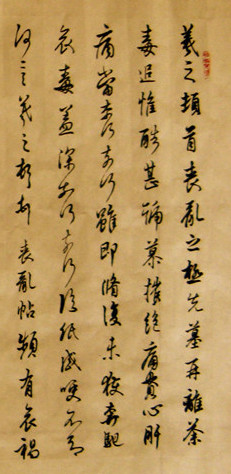 羲之頓首喪亂之極先墓再離荼
毒追惟酷甚號慕摧絕痛貫心肝
痛當奈何奈何雖即脩復未獲奔馳
哀毒益深奈何奈何臨紙感哽不知
何言羲之頓首喪亂帖頻有哀禍